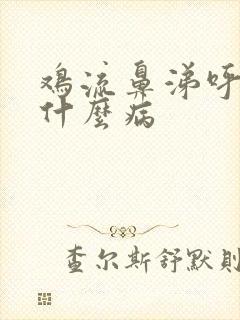 鸡流鼻涕呼
什麼病
查尔斯舒默則